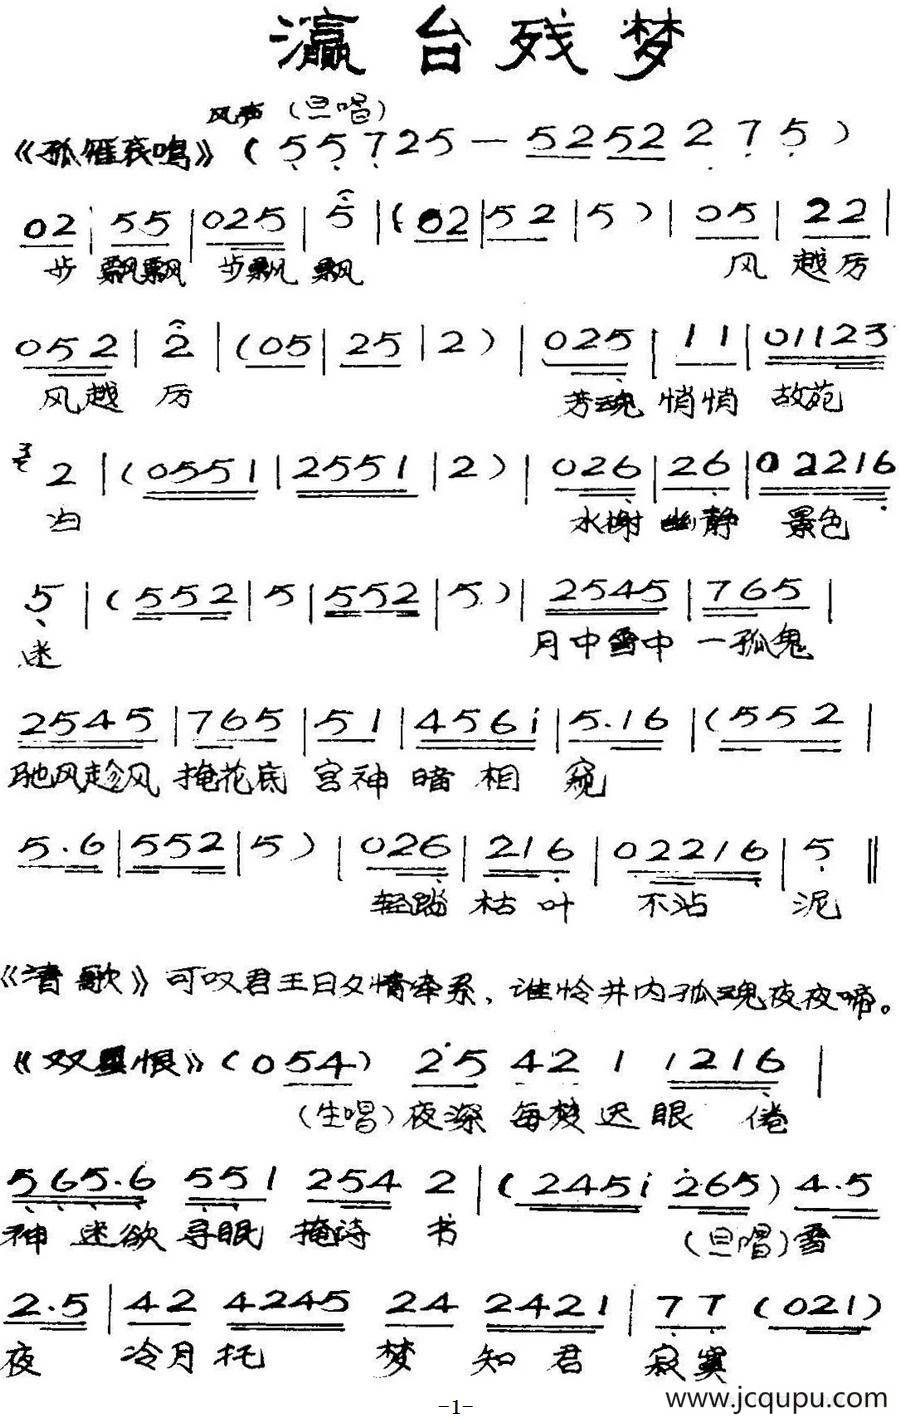 瀛台残梦
风声 (旦唱)
《孤雁哀鸣》( 5 5 7 2 5 — 5 2 5 2 2 7 5 )
0 2 | 5 5 | 0 2 5 | 5 | ( 0 2 | 5 2 | 5 ) | 0 5 | 2 2 |
步 飘飘 步飘 飘 风 越厉
0 5 2 | 2 | ( 0 5 | 2 5 | 2 ) | 0 2 5 | 1 1 | 0 1 1 2 3
风越 厉 芳魂 悄悄 故苑
2 | ( 0 5 5 1 | 2 5 5 1 | 2 ) | 0 2 6 | 2 6 | 0 2 2 1 6
归 水榭 幽静 景色
5 | ( 5 5 2 | 5 | 5 5 2 | 5 ) | 2 5 4 5 | 7 6 5 |
迷 月中雪中 一孤鬼
2 5 4 5 | 7 6 5 | 5 1 | 4 5 6 i | 5 . 1 6 | ( 5 5 2 |
驰风趁风 掩花底 宫神 暗 相 窥
5 . 6 | 5 5 2 | 5 ) | 0 2 6 | 2 1 6 | 0 2 2 1 6 | 5 ‖
轻踏 枯 叶 不沾 泥
《清歌》可叹君王日夕情牵系、谁怜井内孤魂夜夜啼。
《双星恨》( 0 5 4 ) 2 5 4 2 1 1 2 1 6 |
(生唱) 夜深 每梦 迟 眼 倦
5 6 5 . 6 5 5 1 2 5 4 2 | ( 2 4 5 i 2 6 5 ) 4 . 5
神 迷欲 寻眠 掩诗 书 (旦唱) 雪
2 . 5 | 4 2 4 2 4 5 2 4 2 4 2 1 | 7 7 ( 0 2 1 )
夜 冷月 托 梦 知 君 寂寞
-1-
www.jcqupu.com